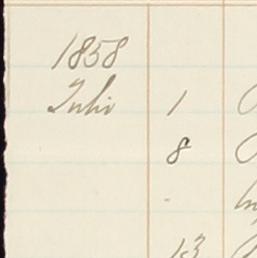 1858
Julio 1
8
-
13